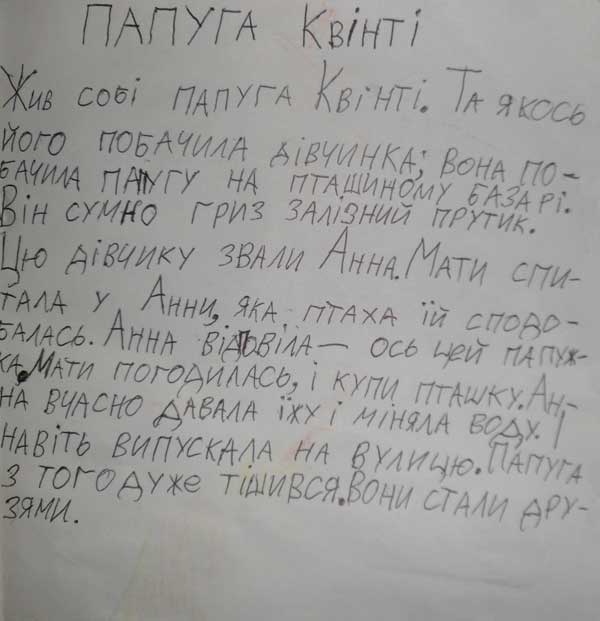 ПАПУГА КВІНТІ
ЖИВ СОБІ ПАПУГА КВІНТІ. ТА ЯКОСЬ
ЙОГО ПОБАЧИЛА ДІВЧИНКА; ВОНА ПО-
БАЧИЛА ПАПУГУ НА ПТАШИНОМУ БАЗАРІ.
ВІН СУМНО ГРИЗ ЗАЛІЗНИЙ ПРУТИК.
ЦЮ ДІВЧИКУ ЗВАЛИ АННА. МАТИ СПИ-
ТАЛА У АННИ, ЯКА ПТАХА ЇЙ СПОДО-
БАЛАСЬ. АННА ВІДПВІЛА — ОСЬ ЦЕЙ ПАПУЖ-
КА. МАТИ ПОГОДИЛАСЬ, І КУПИ ПТАШКУ. АН-
НА ВЧАСНО ДАВАЛА ЇЖУ І МІНЯЛА ВОДУ. І
НАВІТЬ ВИПУСКАЛА НА ВУЛИЦЮ. ПАПУГА
З ТОГО ДУЖЕ ТІШИВСЯ. ВОНИ СТАЛИ ДРУ-
ЗЯМИ.